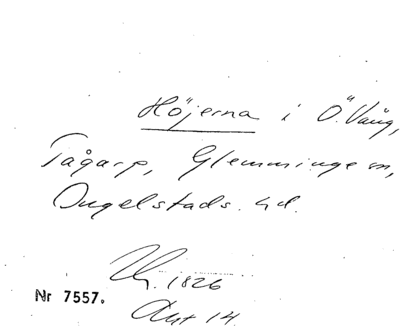 Höjerna i Ö. Vång,
Tågarp, Glemminge sn,
Ingelstads hd.
1826
Nr 7557.
Akt 14.